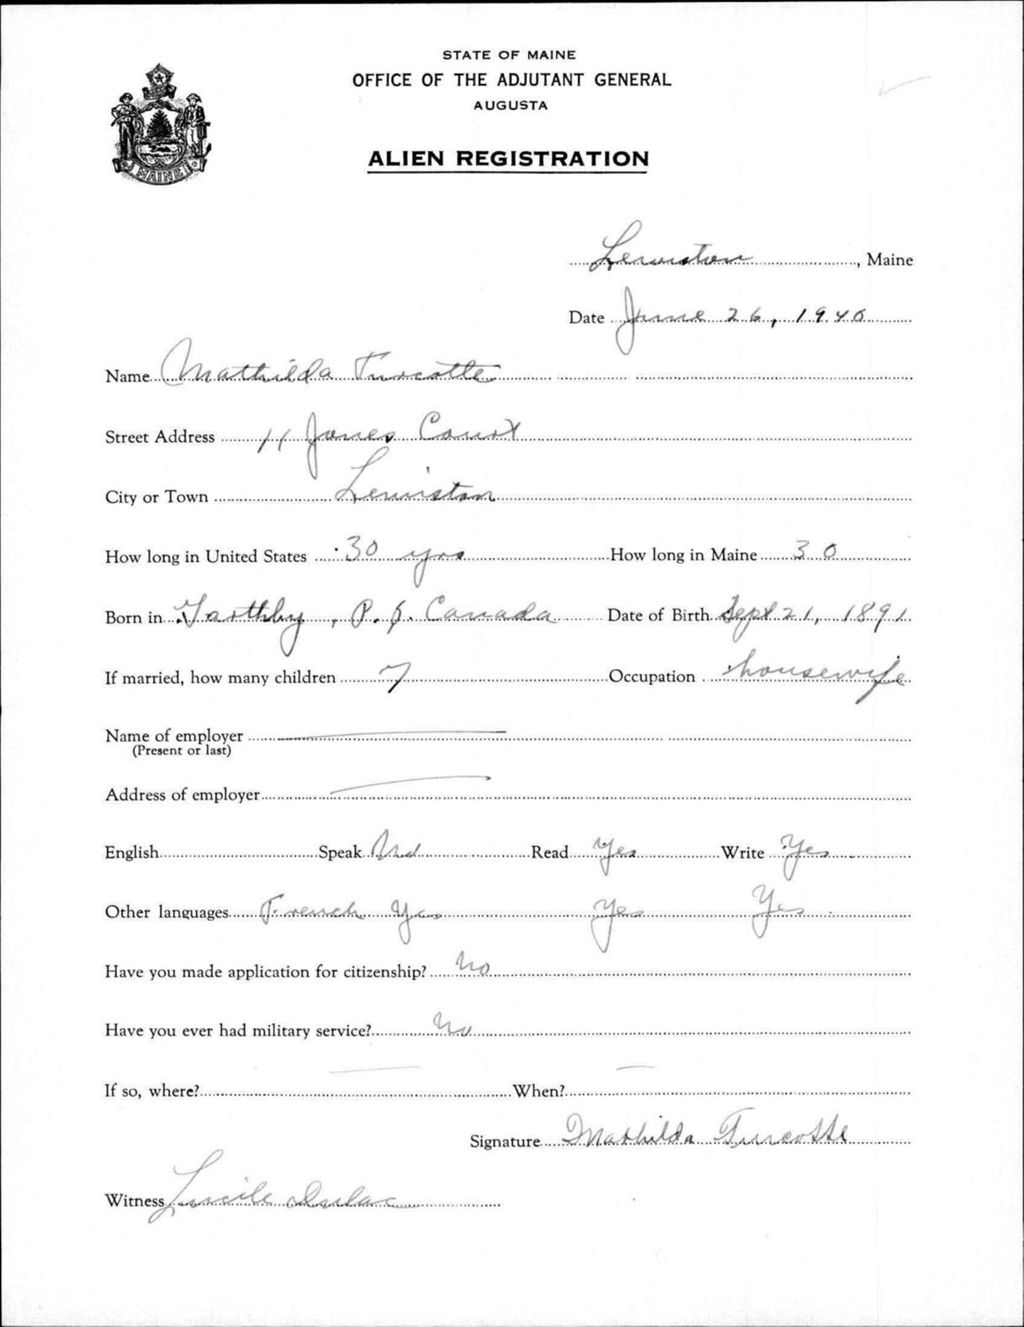 STATE OF MAINE
OFFICE OF THE ADJUTANT GENERAL
AUGUSTA
MAINE
ALIEN REGISTRATION
Lewiston, Maine
Date June 26, 1940
Name Mathilda Turcotte
Street Address 11 Jones Court
City or Town Lewiston
How long in United States 30 yrs How long in Maine 30
Born in Garthby, P. Q. Canada Date of Birth Sept 21, 1891
If married, how many children 7 Occupation housewife
Name of employer
(Present or last)
Address of employer
English Speak No Read Yes Write Yes
Other languages French Yes Yes Yes
Have you made application for citizenship? No
Have you ever had military service? No
If so, where? When?
Signature Mathilda Turcotte
Witness Lucile Dulac